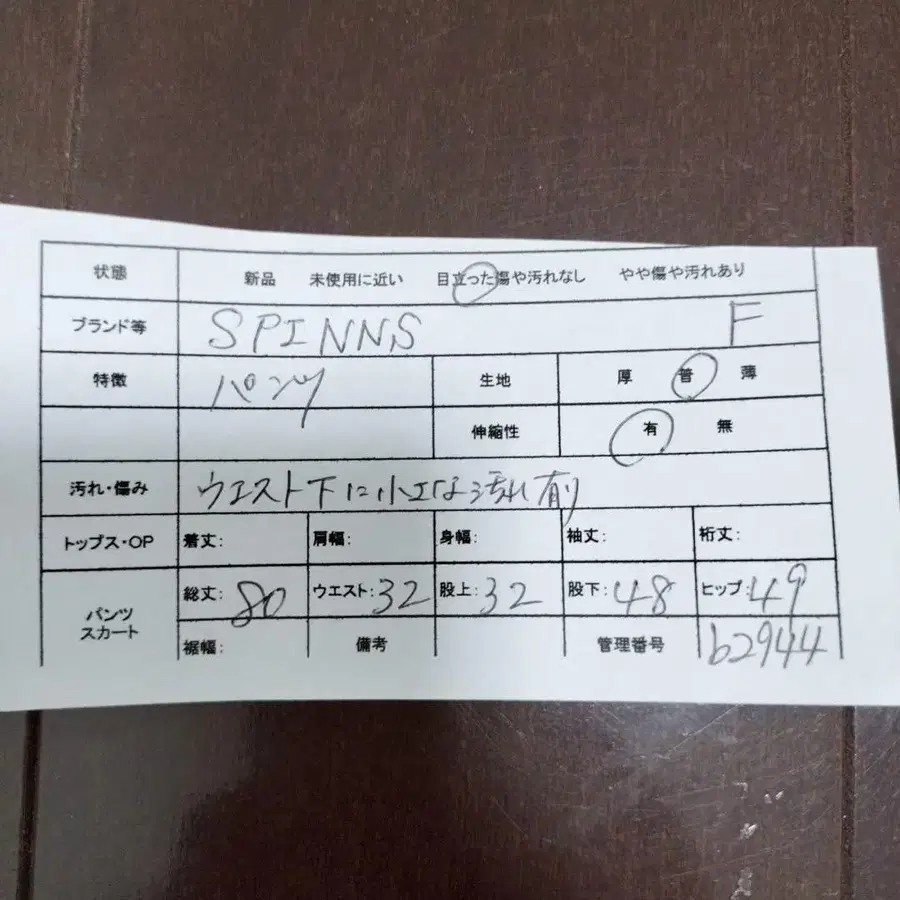 状態 新品 未使用に近い 目立った傷や汚れなし やや傷や汚れあり
ブランド等 SPINNS F
特徴 パンツ 生地 厚 普 薄
伸縮性 有 無
汚れ・傷み ウエスト下に小さな汚れ有り
トップス・OP 着丈: 肩幅: 身幅: 袖丈: 裄丈:
パンツ スカート 総丈: 80 ウエスト: 32 股上: 32 股下: 48 ヒップ: 49
裾幅: 備考 管理番号 b2944